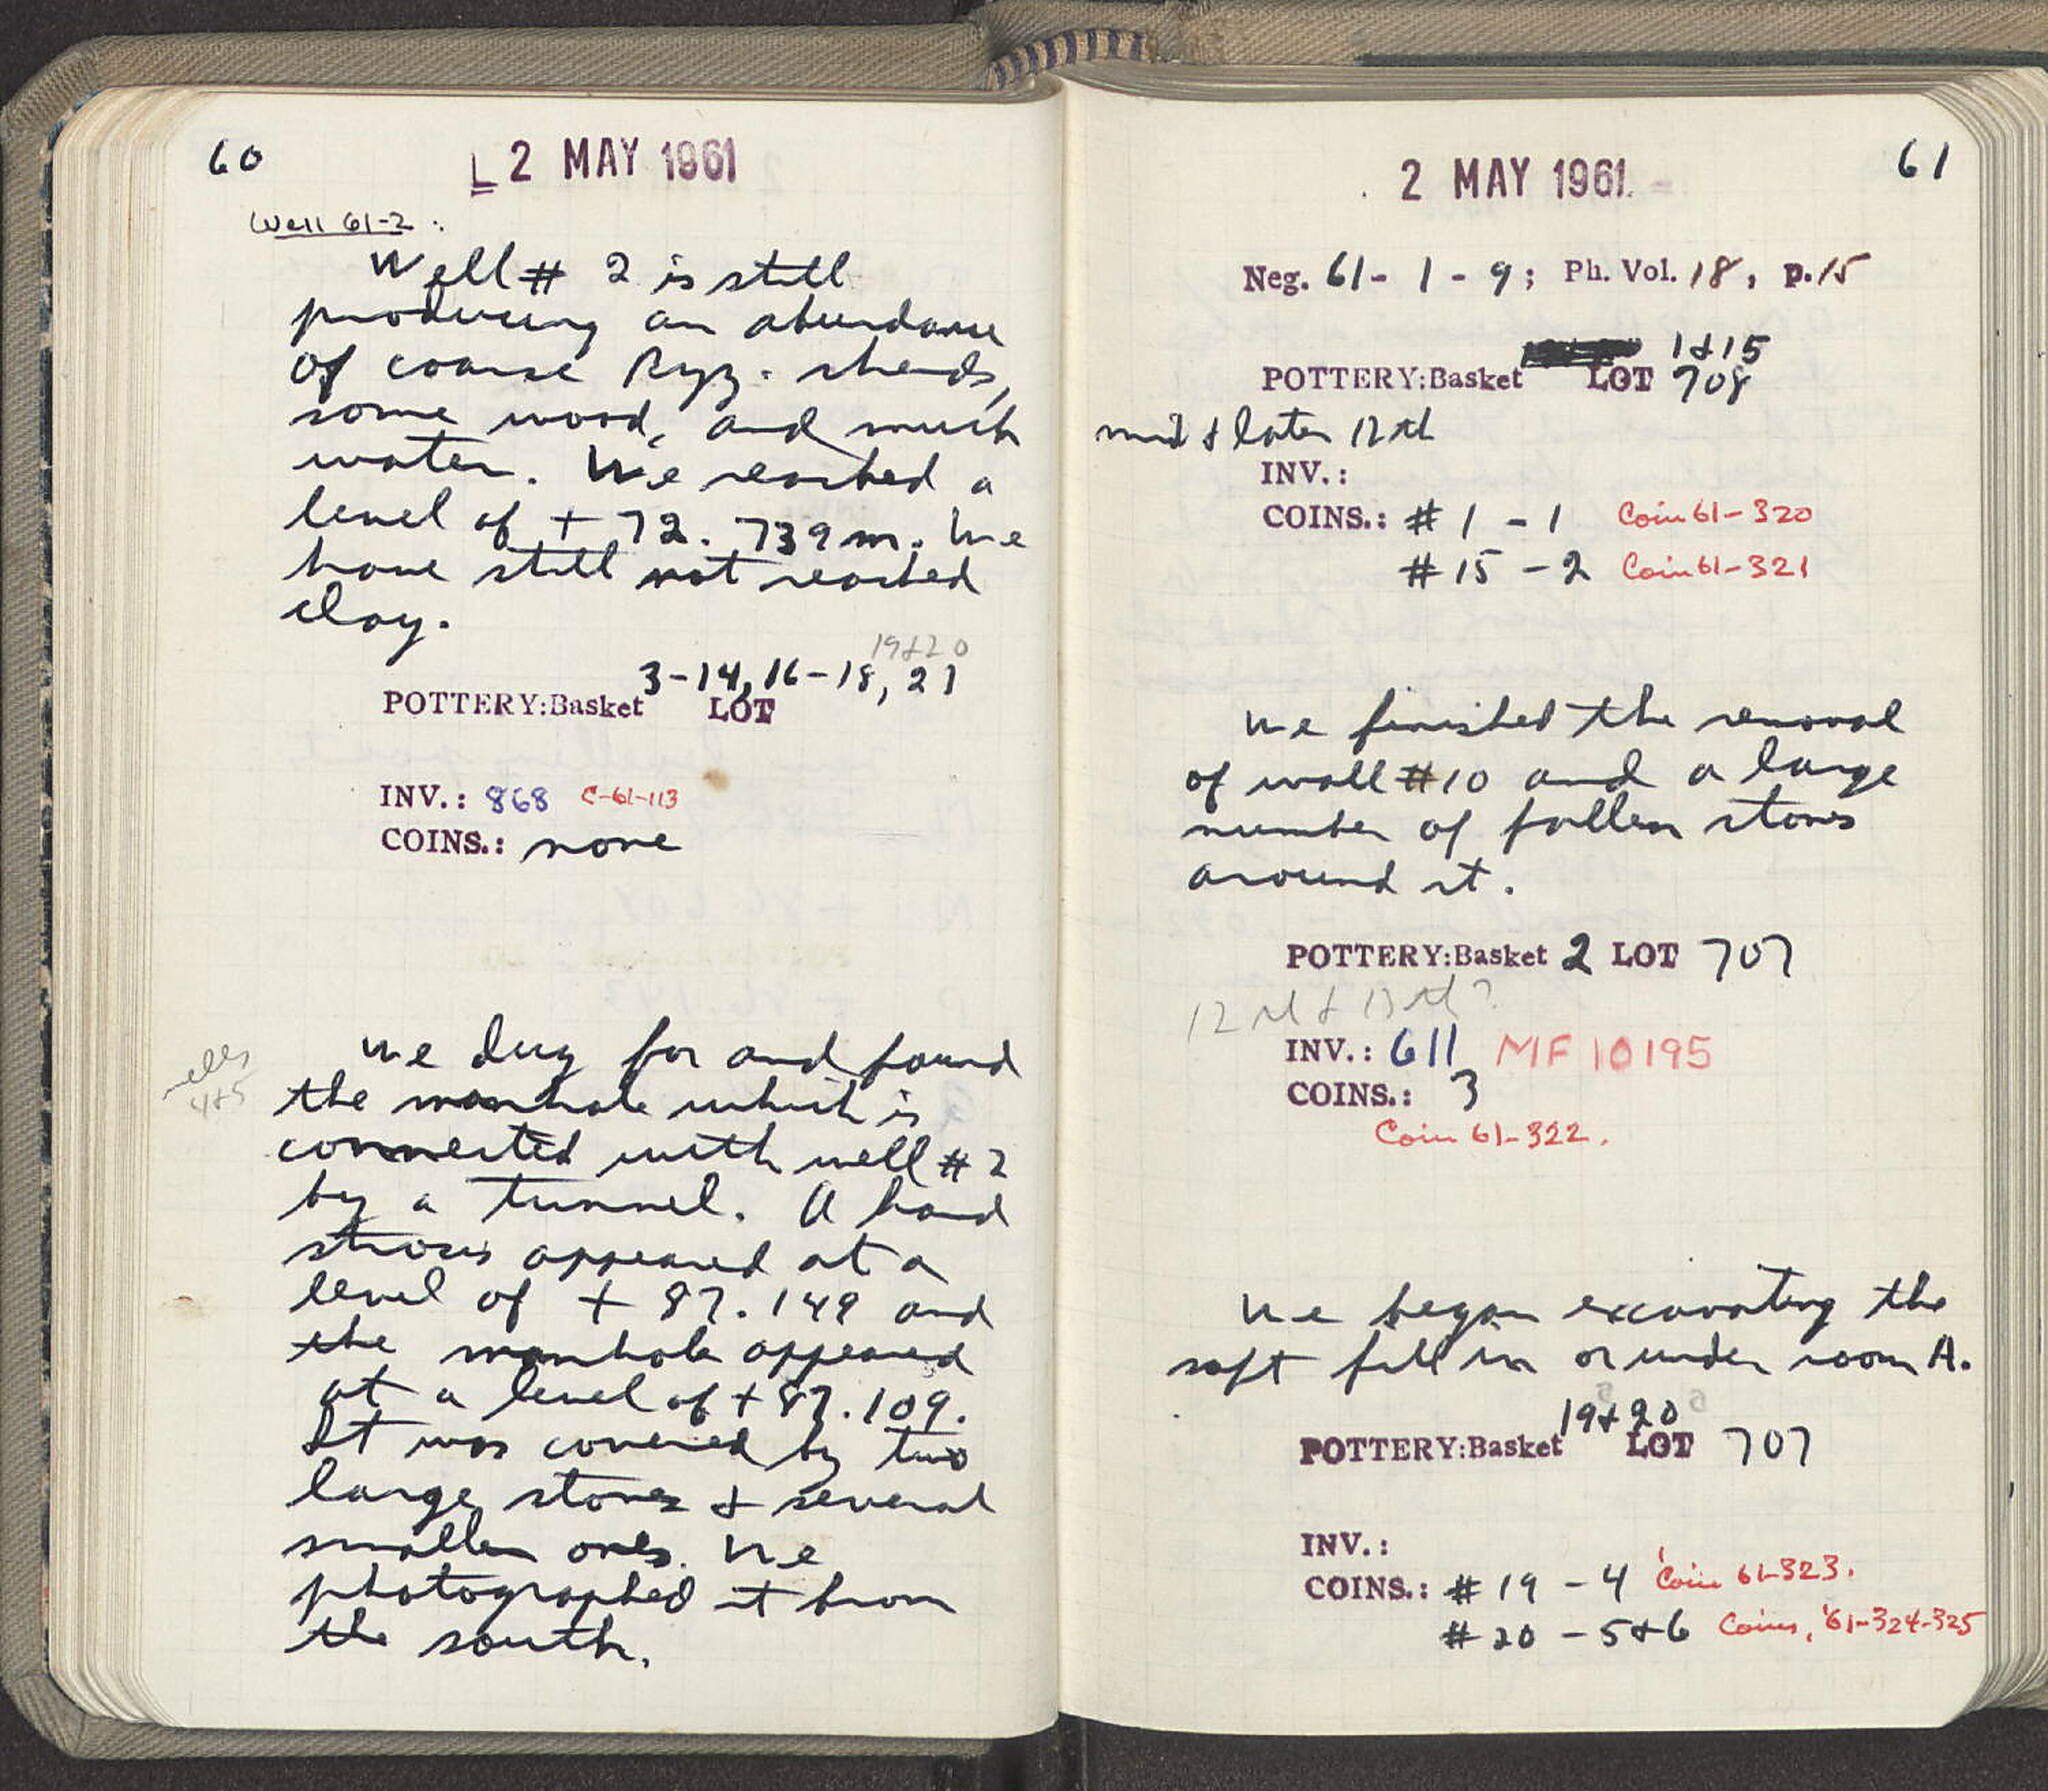 60
L 2 MAY 1961
Well 61-2 :
Well # 2 is still
producing an abundance
of coarse Byz. sherds,
some wood, and much
water. We reached a
level of + 72.739 m. We
have still not reached
clay.
19&20
3-14, 16-18, 21
POTTERY:Basket LOT
INV.: 868 C-61-113
COINS.: none
We dug for and found
the manhole which is
connected with well # 2
by a tunnel. A hard
strosis appeared at a
level of + 87.149 and
the manhole appeared
at a level of + 87.109.
It was covered by two
large stones & several
smaller ones. We
photographed it from
the south.
4&5
61
2 MAY 1961
Neg. 61-1-9; Ph. Vol. 18, p.15
1&15
POTTERY:Basket LOT 708
mid & later 12th
INV.:
COINS.: # 1 - 1 Coin 61-320
# 15 - 2 Coin 61-321
We finished the removal
of wall #10 and a large
number of fallen stones
around it.
POTTERY:Basket 2 LOT 707
12th & 13th?
INV.: 611 MF 10195
COINS.: 3
Coin 61-322.
We began excavating the
soft fill in or under room A.
19&20
POTTERY:Basket LOT 707
INV.:
COINS.: # 19 - 4 Coin 61-323.
# 20 - 5&6 Coins, '61-324-325